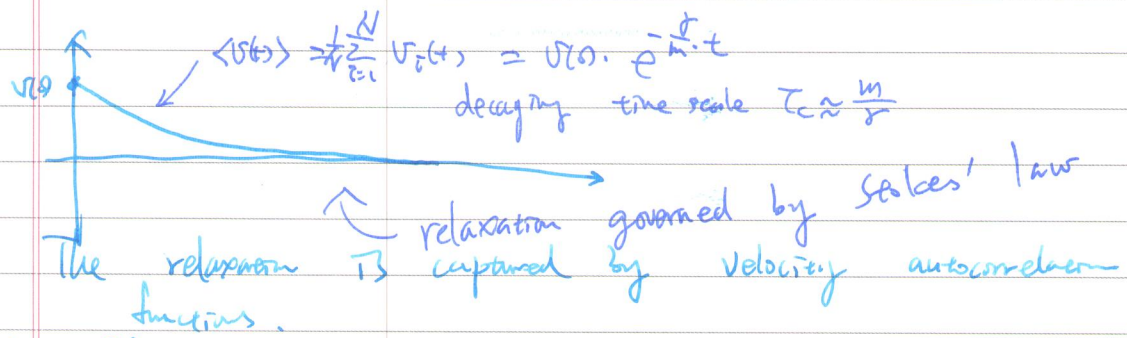 <v(t)> = 1/N Σ_{i=1}^{N} v_i(t) = v(0) · e^{-γ/m · t}
v(0)
decaying time scale τ_c ≈ m/γ
relaxation governed by Stokes' law
The relaxation is captured by velocity autocorrelation
functions.